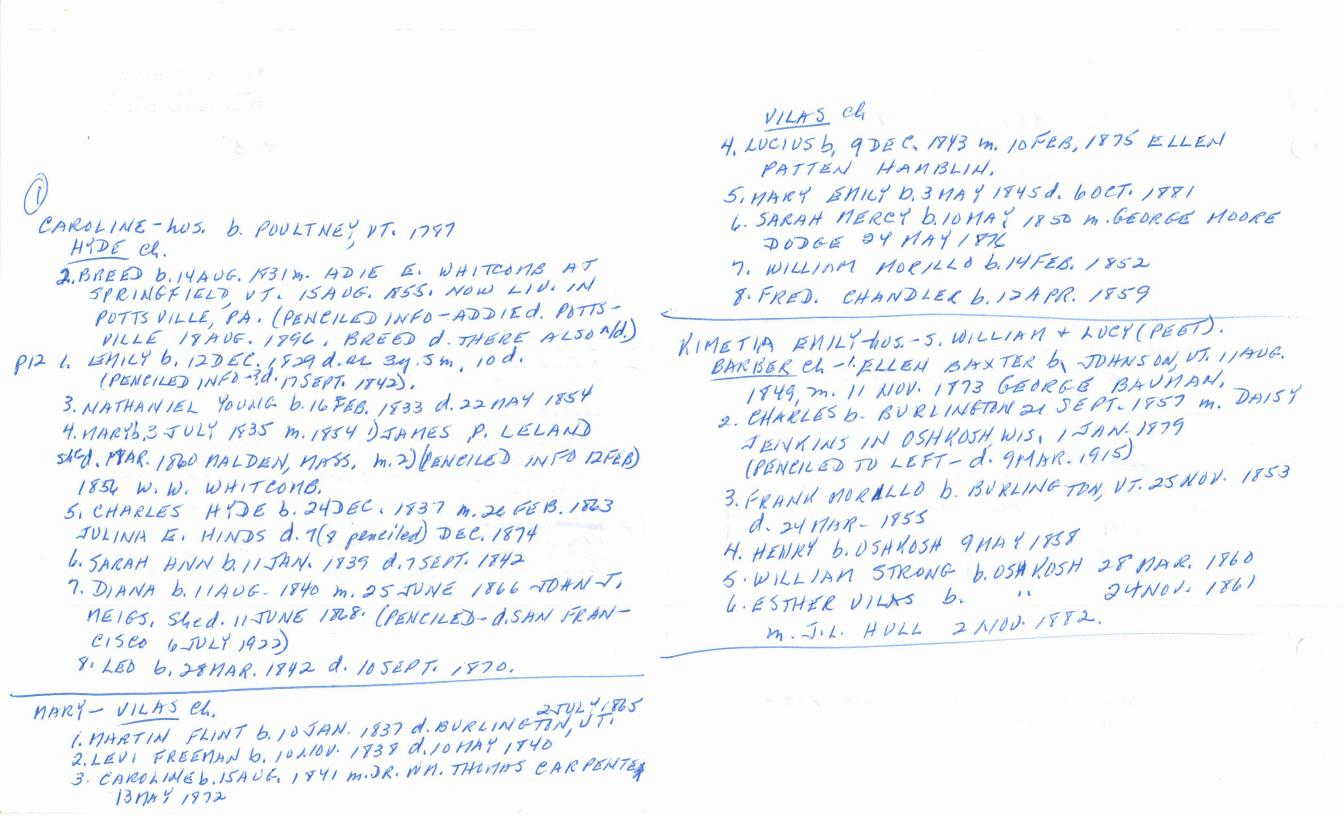 ①
CAROLINE - hus. b. POULTNEY, VT. 1797
HYDE ch.
2. BREED b. 14 AUG. 1831 m. ADIE E. WHITCOMB AT
SPRINGFIELD, VT. 15 AUG. 1855. NOW LIV. IN
POTTSVILLE, PA. (PENCILED INFO - ADDIE d. POTTS-
VILLE 18 AUG. 1896. BREED d. THERE ALSO n/d.)
P12 1. EMILY b. 12 DEC. 1829 d. ae 3y. 5m, 10 d.
(PENCILED INFO d. 17 SEPT. 1842).
3. NATHANIEL YOUNG b. 16 FEB. 1833 d. 22 MAY 1854
4. MARY b. 3 JULY 1835 m. 1854 1) JAMES P. LELAND
d. MAR. 1860 MALDEN, MASS. m. 2) (PENCILED INFO 12 FEB)
1856 W. W. WHITCOMB.
5. CHARLES HYDE b. 24 DEC. 1837 m. 26 FEB. 1863
JULINA E. HINDS d. 7 (8 penciled) DEC. 1874
6. SARAH ANN b. 11 JAN. 1839 d. 7 SEPT. 1842
7. DIANA b. 11 AUG. 1840 m. 25 JUNE 1866 JOHN J.
MEIGS, She d. 11 JUNE 1868. (PENCILED - d. SAN FRAN-
CISCO 6 JULY 1922)
8. LEO b. 28 MAR. 1842 d. 10 SEPT. 1870.
MARY - VILAS ch.
2 JULY 1865
1. MARTIN FLINT b. 10 JAN. 1837 d. BURLINGTON, VT.
2. LEVI FREEMAN b. 10 NOV. 1838 d. 10 MAY 1840
3. CAROLINE b. 15 AUG. 1841 m. DR. WM. THOMAS CARPENTER
13 MAY 1872
VILAS ch
4. LUCIUS b. 9 DEC. 1843 m. 10 FEB, 1875 ELLEN
PATTEN HAMBLIN.
5. MARY EMILY b. 3 MAY 1845 d. 6 OCT. 1881
6. SARAH MERCY b. 10 MAY 1850 m. GEORGE MOORE
DODGE 24 MAY 1876
7. WILLIAM MORILLO b. 14 FEB. 1852
8. FRED. CHANDLER b. 12 APR. 1859
KIMETIA EMILY - hus. - S. WILLIAM + LUCY (PEET).
BARBER ch - 1. ELLEN BAXTER b. JOHNSON, VT. 11 AUG.
1849, m. 11 NOV. 1873 GEORGE BAUMAN.
2. CHARLES b. BURLINGTON 21 SEPT. 1857 m. DAISY
JENKINS IN OSHKOSH, WIS. 1 JAN. 1879
(PENCILED TO LEFT - d. 9 MAR. 1915)
3. FRANK MORILLO b. BURLINGTON, VT. 25 NOV. 1853
d. 24 MAR - 1855
4. HENRY b. OSHKOSH 9 MAY 1858
5. WILLIAM STRONG b. OSHKOSH 28 MAR. 1860
6. ESTHER VILAS b. " 24 NOV. 1861
m. J.L. HULL 2 NOV. 1882.